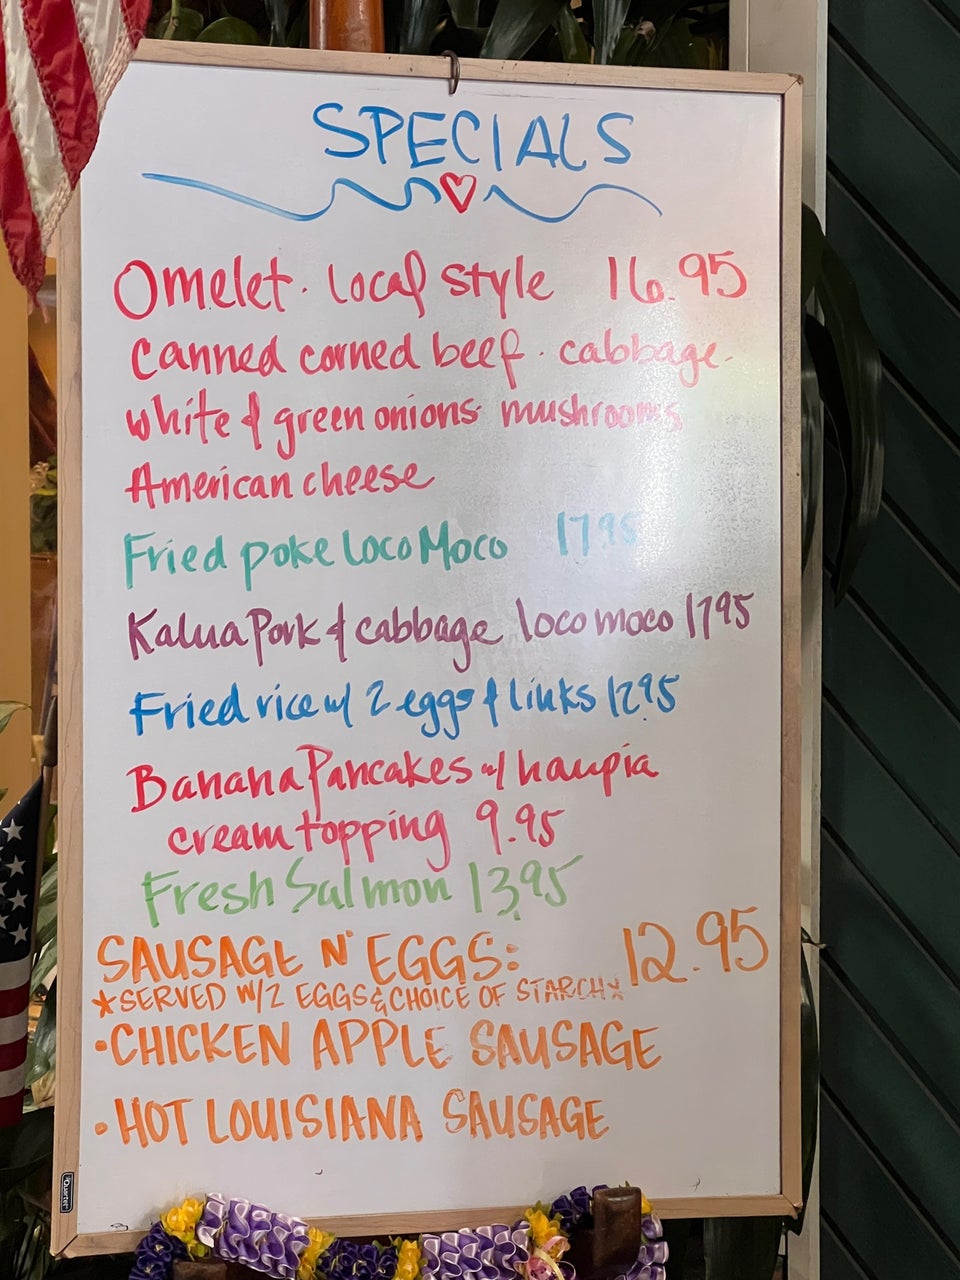 SPECIALS
Omelet. local style 16.95
Canned corned beef. cabbage.
white & green onions mushrooms
American cheese
Fried poke Loco Moco 17.95
Kalua Pork & cabbage loco moco 1795
Fried rice w/ 2 eggs & links 12.95
Banana Pancakes w/ haupia
cream topping 9.95
Fresh Salmon 13.95
SAUSAGE N' EGGS: 12.95
*SERVED W/2 EGGS & CHOICE OF STARCH*
•CHICKEN APPLE SAUSAGE
•HOT LOUISIANA SAUSAGE
Quartet